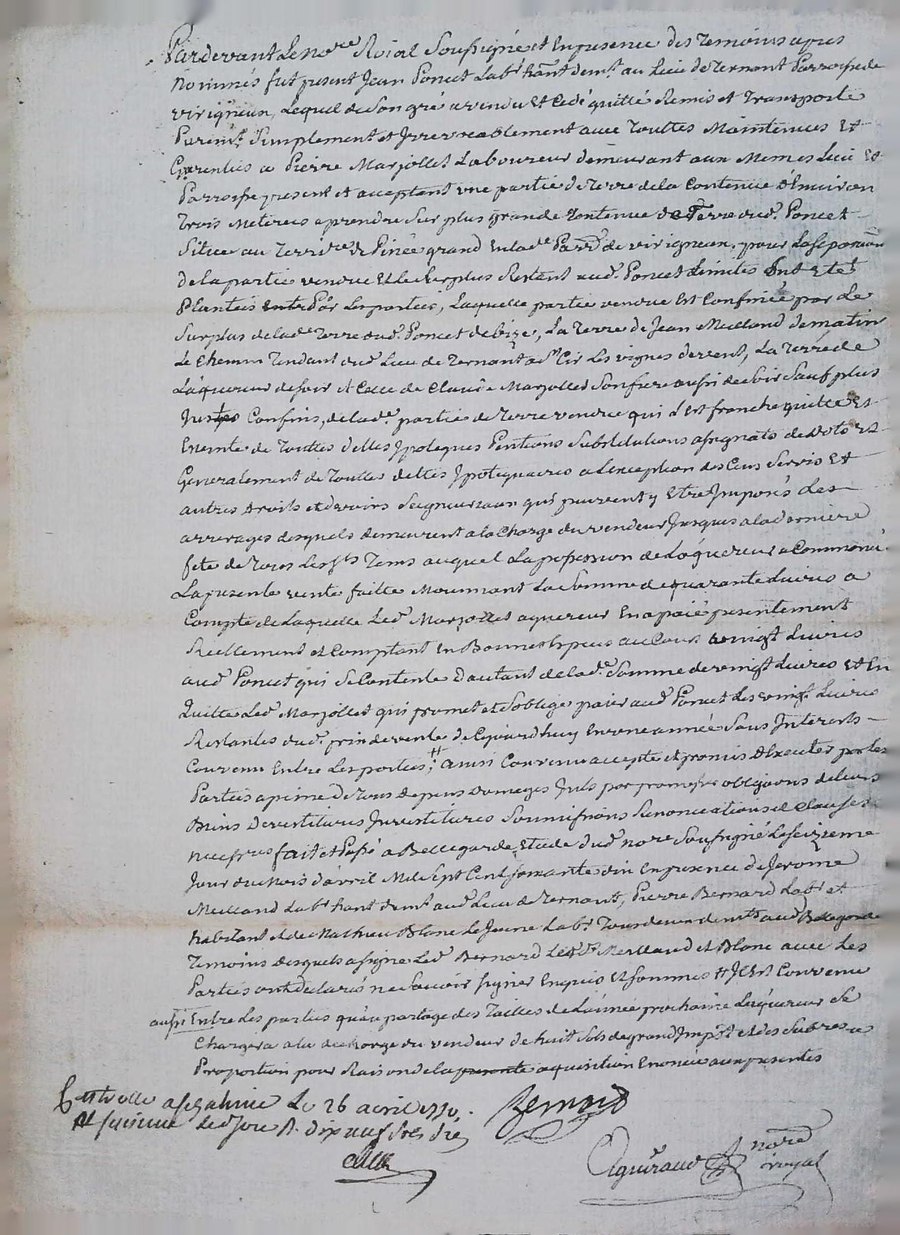 Pardevant Le no.re Roial Soussigné et En presence des Temoins apres
nommés fut present Jean Poncet Lab.r hant demt. au Lieu de Ternant Parroisse de
virigneux, Lequel de Son gré a vendu Et Cedé quitté Remis et Transporté
Purem.t Simplement et Irrevocablement avec Touttes Maintenues Et
Garenties a Pierre Marjollet Laboureur demeurant aux Memes Lieu Et
Parroisse present et acceptant une partie de Terre de la Contenue d'Environ
Trois Meterées a prendre Sur plus grande Contenue de Terre dud. Poncet
Située au Terr.re de Pinée grand En lad.e Parr.e de virigneux, pour La Separation
de la partie vendue Et le Surplus Restant aud. Poncet Limites Ont Eté
Plantés Entre Par Les parties, Laquelle partie vendue Est Confinée par Le
Surplus de lad.e Terre dud. Poncet de bize, La Terre de Jean Meilland de matin
Le Chemin Tendant dud. Lieu de Ternant a St Cir Les vignes de vent, La Terre de
L'aquereur de soir et Celle de Claude Marjollet Son frere aussi de soir Sauf plus
Justes Confins, de lad.e partie de Terre vendue qui d'Est franche quitte Et
Exemte de Touttes dettes Ipoteques Pentions Substitutions assignats de dots Et
Generalement de Touttes dettes Ipotequaires a L'exception des Cens Servis Et
autres Droits et devoirs Seigneuriaux qui peuvent y Etre Imposés Les
arrerages desquels demeurent a la Charge du vendeur Jusques a la derniere
fete de Tous Les Sts Tems auquel La possession de L'aquereur a Commencé
La presente vente faitte Moiennant La Somme de quarante Livres a
Compte de Laquelle Led. Marjollet aquereur En a paié presentement
Reellement et Comptant En Bonnes Espèces au Cours vingt Livres
aud. Poncet qui Se Contente d'autant de lad.e Somme de vingt Livres Et En
Quitte Led. Marjollet qui promet et S'oblige paier aud. Poncet Les vingt Livres
Restantes dud. prix de vente de Cejourdhuy En une année Sans Interets
Convenu Entre Les parties; # Ainsi Convenu accepté et promis Executer par les
Parties a peine de Tous depens domages Ints par promesses obligations de leurs
Biens Devestitures Investitures Soumissions Renonciations et Clauses
necess.res fait et Passé a Bellegarde Etude dud. nore Soussigné Le seizieme
Jour du Mois d'avril Mil Sept Cent Soixante dix En presence de Jerome
Meilland Labr hant demt. aud. Lieu de Ternant, Pierre Bernard Labr et
habitant et de Mathieu Blanc Le Jeune Labr. Tous deux demts. aud. Bellegarde
Temoins desquels a signé Led. Bernard Led. Meilland et Blanc avec Les
Parties ont declarés ne Savoir signer Enquis Et Sommés # Il Est Convenu
aussi Entre Les parties qu'au partage des Tailles de L'année prochaine L'aquereur Se
Chargera a la decharge du vendeur de huit Sols de grand Impot et des Subres a
Proportion pour Raison de la presente aquisition Enoncée aux presentes
Controllé a le 26 avril 1770.
dix neuf sols
Bernard
Aguiraud nore royal